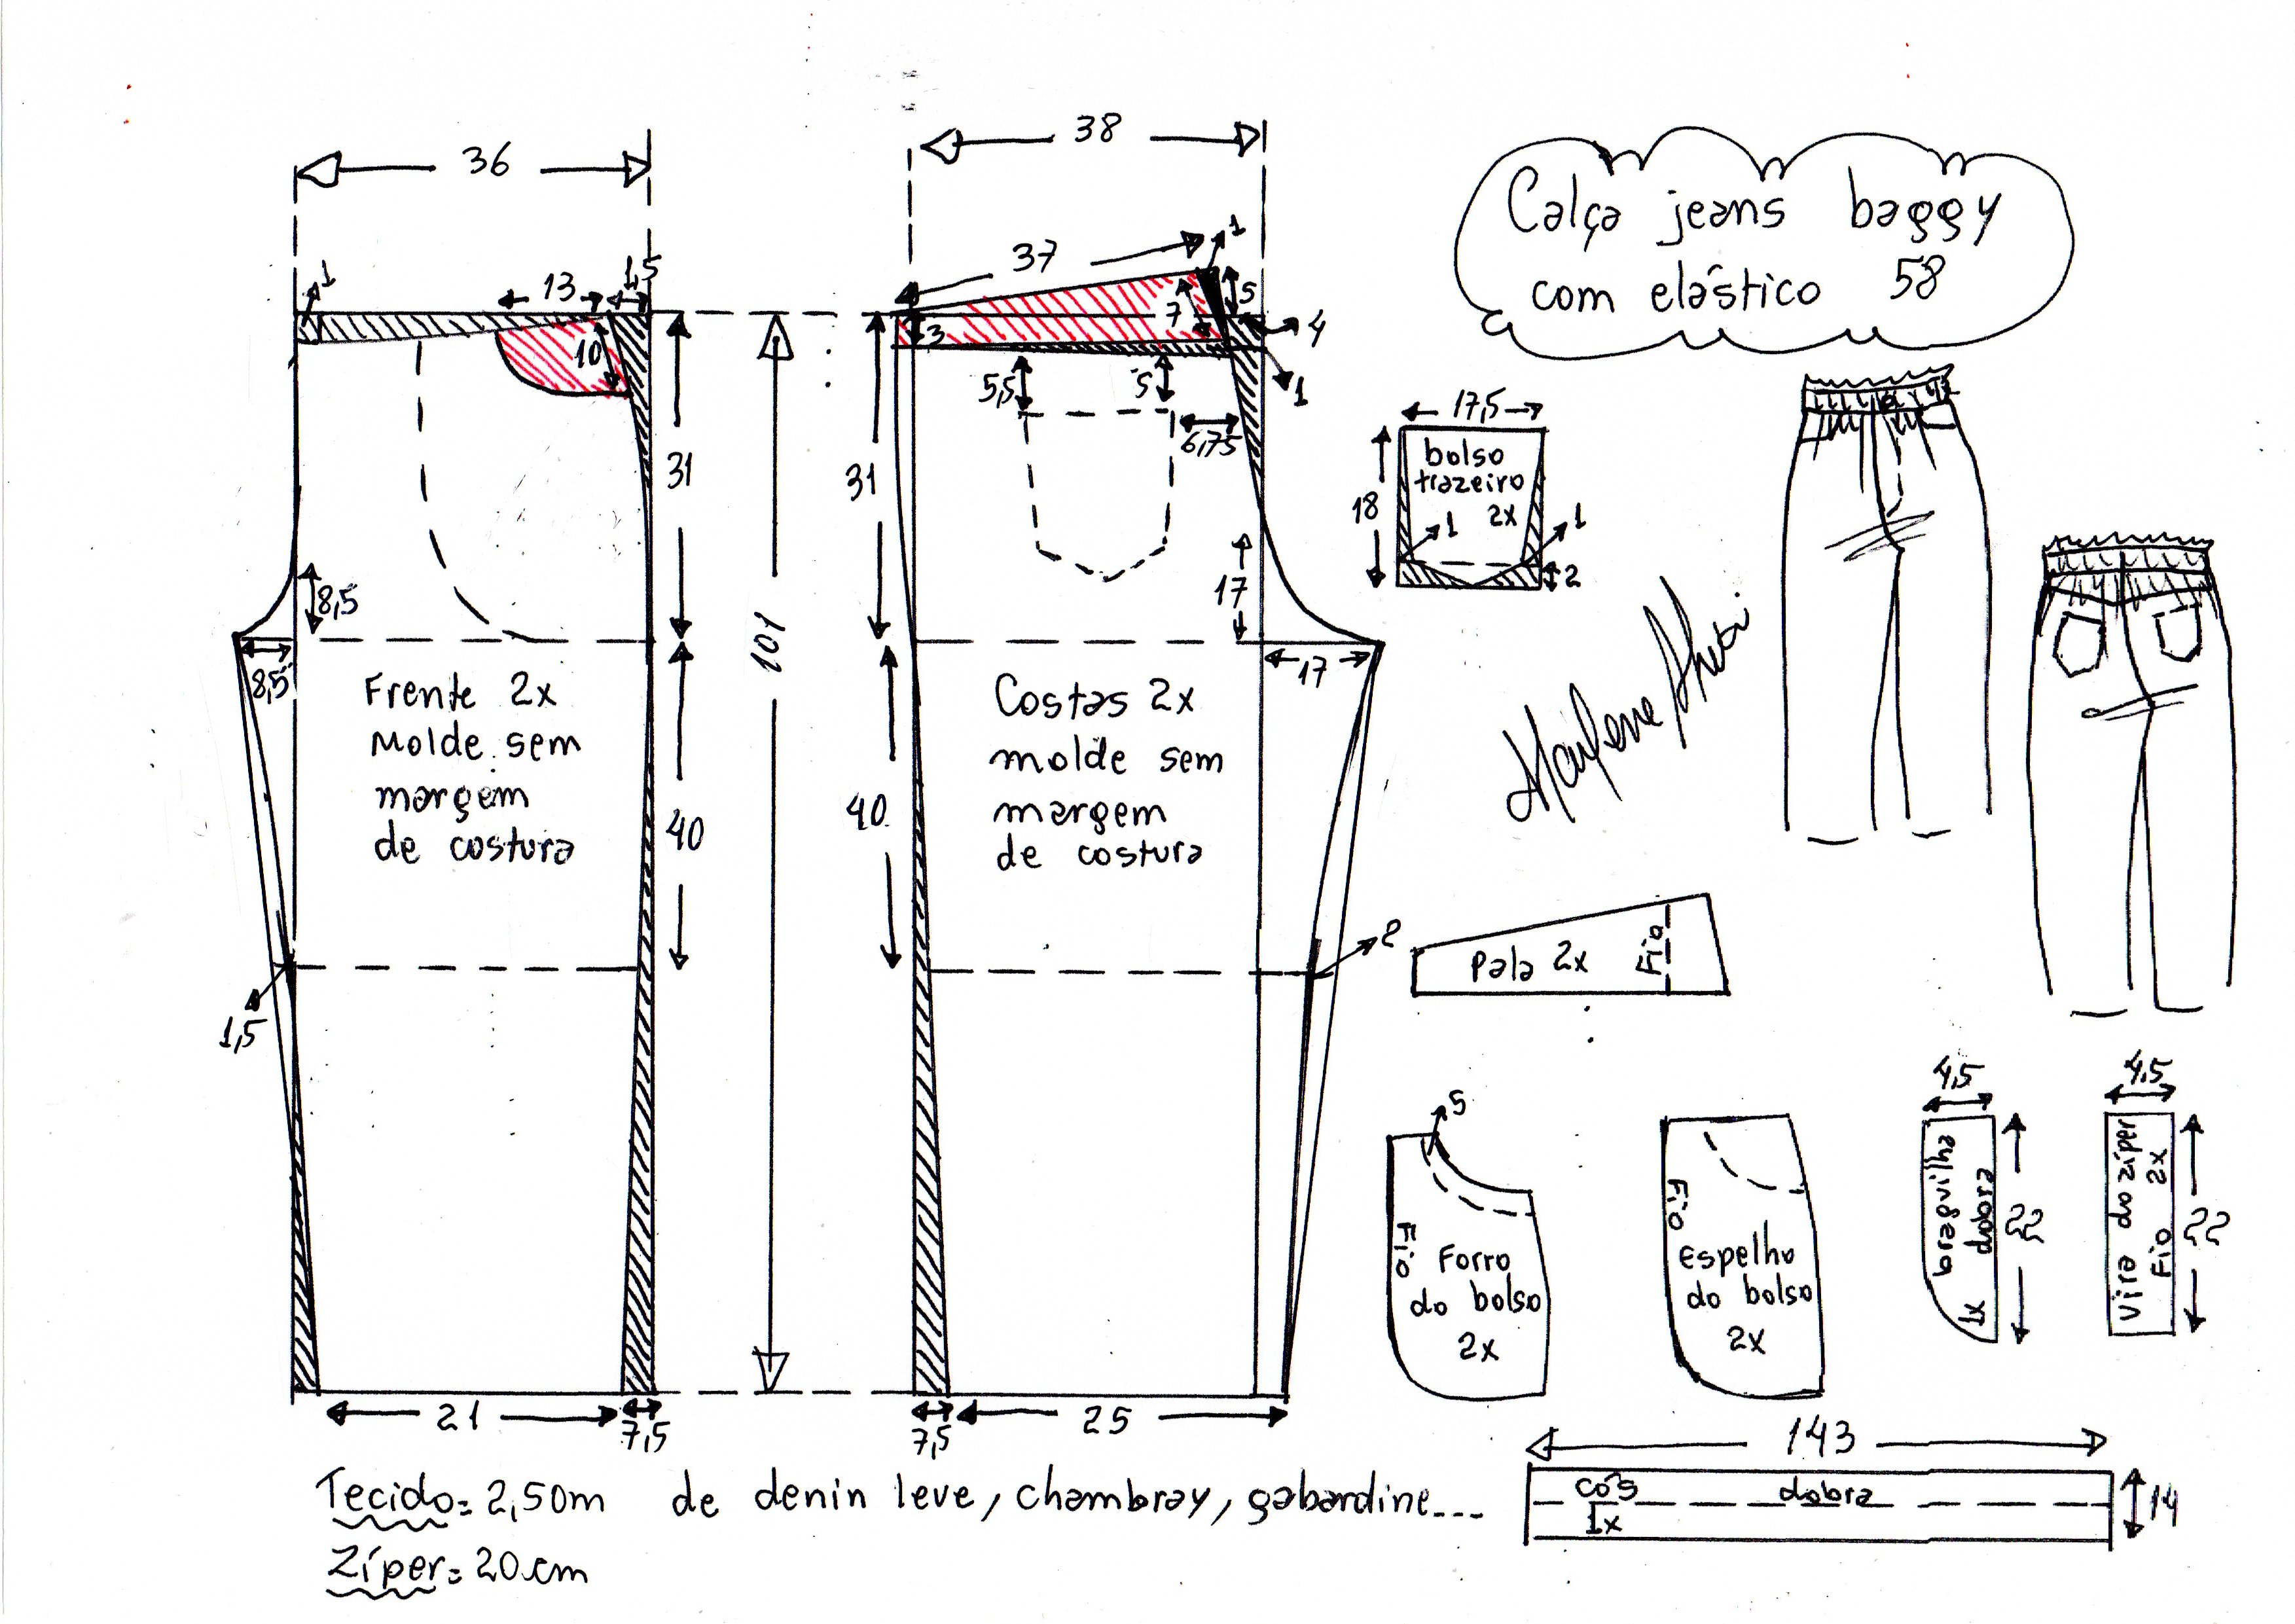 Calça jeans baggy
com elástico 58
36
1
13
1,5
10
31
8,5
8,5
Frente 2x
Molde sem
margem
de costura
40
1,5
21
7,5
101
38
37
1
5
7
4
3
1
5,5
5
6,75
31
17
17
Costas 2x
molde sem
margem
de costura
40
2
7,5
25
17,5
bolso
trazeiro
2x
18
1
1
2
Pala 2x
Fio
5
Fio
Forro
do bolso
2x
Fio
Espelho
do bolso
2x
4,5
braguilha
dobra
1x
22
4,5
Vira do zíper
Fio 2x
22
143
cós
dobra
1x
14
Tecido= 2,50m de denin leve, chambray, gabardine...
Zíper= 20cm